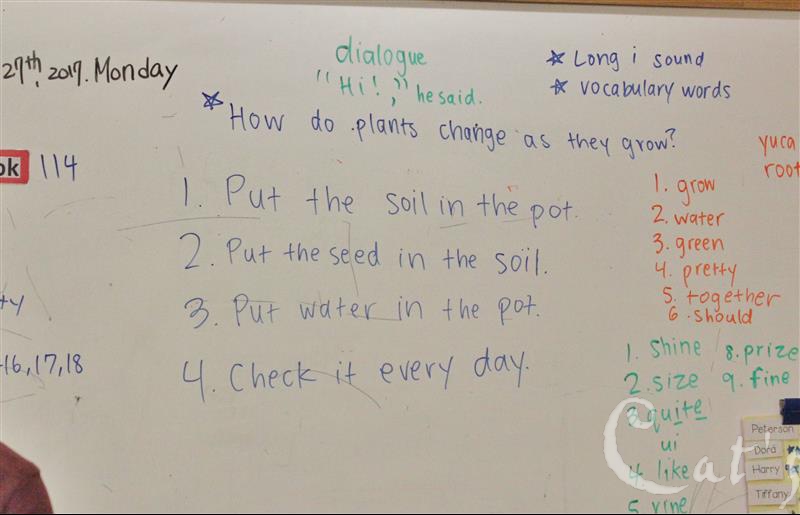 27th. 2017. Monday
dialogue
"Hi!," he said.
☆ Long i sound
☆ vocabulary words
☆ How do plants change as they grow?
ok 114
1. Put the soil in the pot.
2. Put the seed in the soil.
3. Put water in the pot.
4. Check it every day.
16,17,18
yuca
root
1. grow
2. water
3. green
4. pretty
5. together
6. should
1. shine 8. prize
2. size 9. fine
3. quite
ui
4. like
5. vine
Peterson
Dora
Harry
Tiffany
Cat's